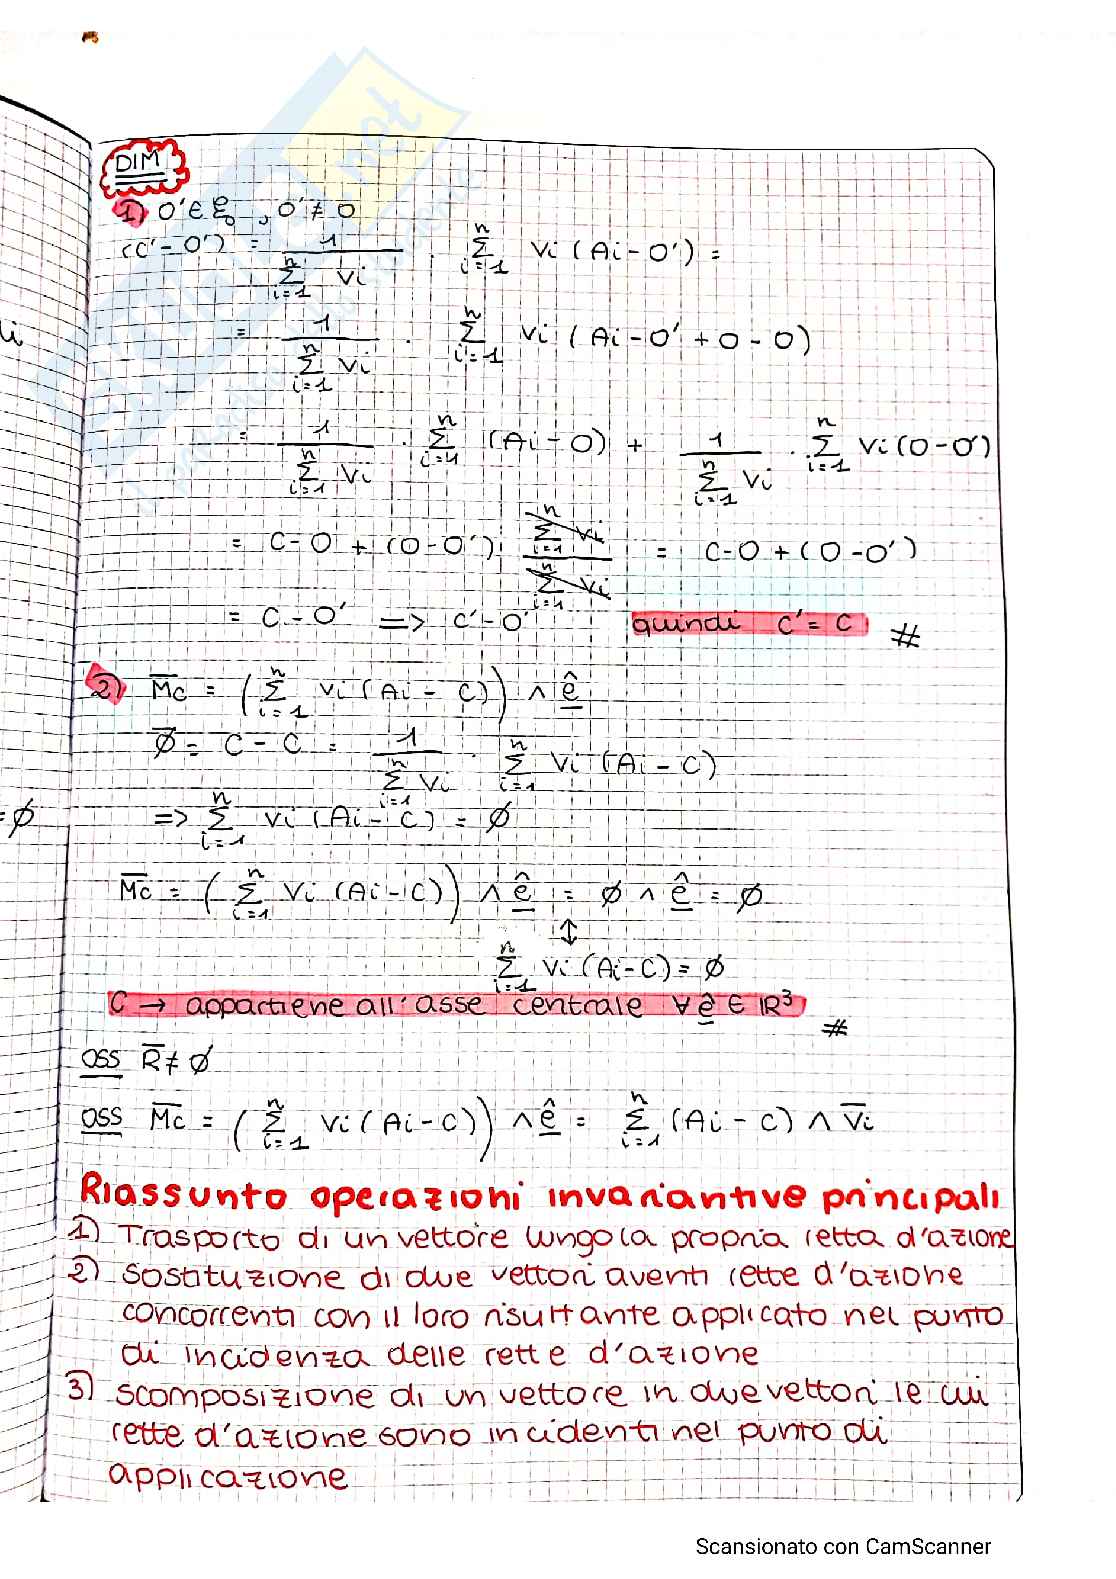 DIM
1) O'∈ξ₀ , O'≠O
(C'-O') = 1/(Σ_{i=1}^{n} Vi) · Σ_{i=1}^{n} Vi (Ai-O') =
= 1/(Σ_{i=1}^{n} Vi) · Σ_{i=1}^{n} Vi (Ai-O'+O-O)
= 1/(Σ_{i=1}^{n} Vi) · Σ_{i=1}^{n} (Ai-O) + 1/(Σ_{i=1}^{n} Vi) · Σ_{i=1}^{n} Vi (O-O')
= C-O + (O-O') · (Σ_{i=1}^{n} Vi)/(Σ_{i=1}^{n} Vi) = C-O + (O-O')
= C-O' => C'-O' quindi C'=C #
2) M̅c = (Σ_{i=1}^{n} Vi (Ai-C)) ∧ ê
∅̅ = C-C = 1/(Σ_{i=1}^{n} Vi) · Σ_{i=1}^{n} Vi (Ai-C)
=∅ => Σ_{i=1}^{n} Vi (Ai-C) = ∅
M̅c = (Σ_{i=1}^{n} Vi (Ai-C)) ∧ ê = ∅ ∧ ê = ∅
↕
Σ_{i=1}^{n} Vi (Ai-C) = ∅
C → appartiene all'asse centrale ∀ ê ∈ ℝ³
#
OSS R̅ ≠ ∅
OSS M̅c = (Σ_{i=1}^{n} Vi (Ai-C)) ∧ ê = Σ_{i=1}^{n} (Ai-C) ∧ V̅i
Riassunto operazioni invariantive principali
1) Trasporto di un vettore lungo la propria retta d'azione
2) Sostituzione di due vettori aventi rette d'azione
concorrenti con il loro risultante applicato nel punto
di incidenza delle rette d'azione
3) scomposizione di un vettore in due vettori le cui
rette d'azione sono incidenti nel punto di
applicazione
Scansionato con CamScanner